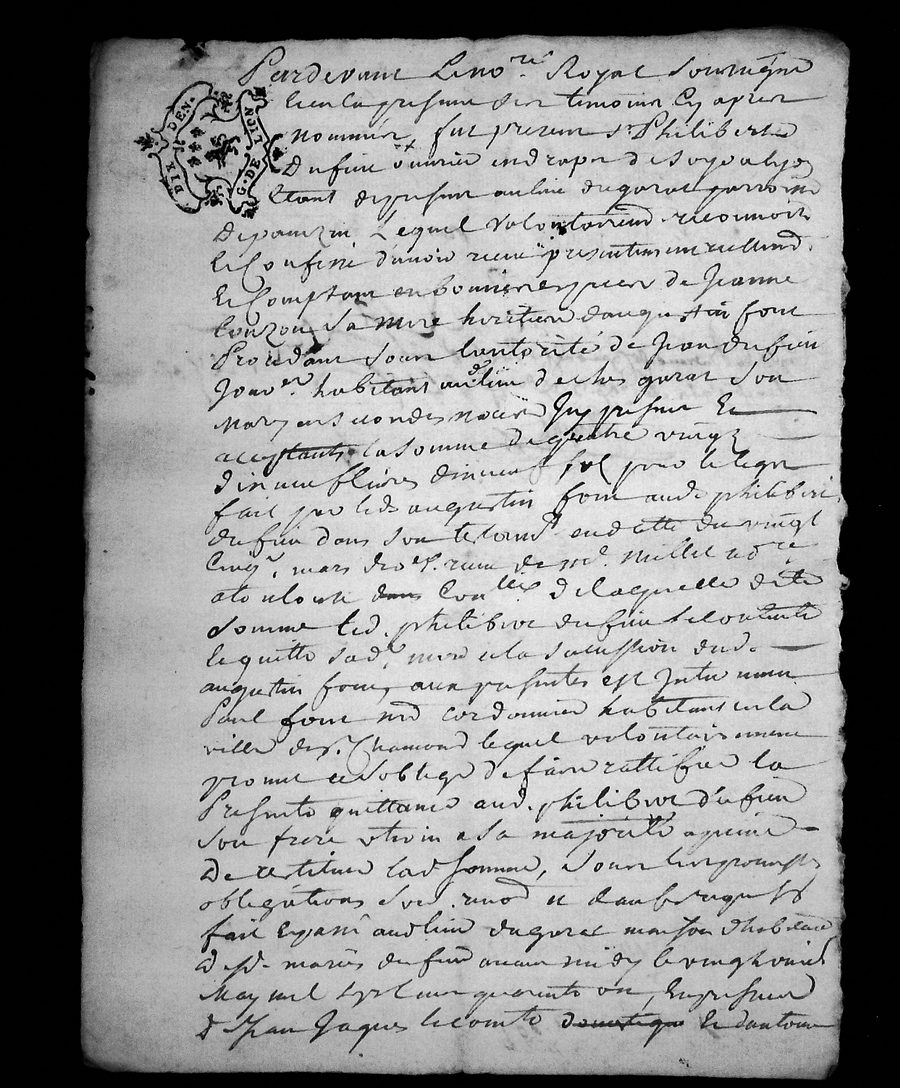 DIX DEN.
G. DE LION
Pardevant Le no.re Royal Soussigné
Et en la presence des temoins Cy apres
nommés, fut present s.r Philibert
Dufieu ouvrier en drap de soye a lyon
Etant de present au lieu du garat parroisse
Depauzin Lequel volontairement reconnoit
Et Confesse d'avoir receu presentement reellement
Et Comptant en bonnes especes de Jeanne
Couzon Sa mere heritiere d'augustin four
Procedant sous l'autorité de Jean dufieu
habitant au lieu de ches garat son
mary en secondes noces Icy presents Et
acceptants la somme de quatre vingt
dixneuf livres dixneuf sols pour le legat
fait par led. augustin four aud. philibert
dufieu dans son testament en datte du vingt
Cinq.e mars receu de m.e Millet no.re
de laquelle ditte
Somme led. philibert dufieu se contente
Et quitte sad. mere et la succession dud.
augustin four, aux presentes est Intervenu
Paul four m.d cordonnier habitant en la
ville de s.t Chamond lequel volontairement
promet et s'oblige de faire rattifier la
Presente quittance aud. philibert dufieu
Son frere uterin a sa majorité a peine
De restituer lad. somme, sous les promesses
obligations
fait Et passé aud. lieu du garat maison d'habitation
Desd. mariés dufieu avant midy le vingt
May mil sept cent quarante un, En presence
De Jean Jaques Lecomte domestique Et d'antoine